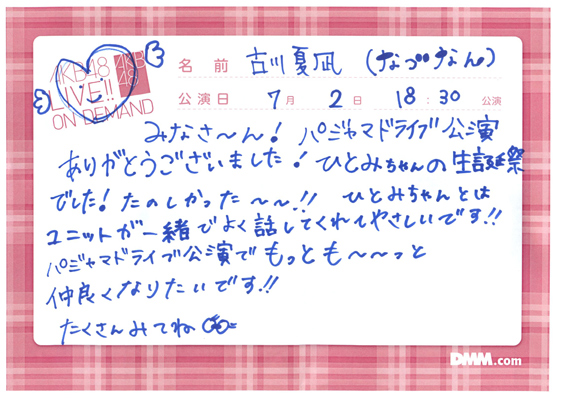 AKB48
LIVE!!
ON DEMAND
AKB
48
名前 古川夏凪 (なづなん)
公演日 7月 2日 18:30 公演
みなさ〜ん! パジャマドライブ公演
ありがとうございました! ひとみちゃんの生誕祭
でした! たのしかった〜〜!! ひとみちゃんとは
ユニットが一緒でよく話してくれてやさしいです!!
パジャマドライブ公演でもっとも〜〜っと
仲良くなりたいです!!
たくさんみてね
DMM.com